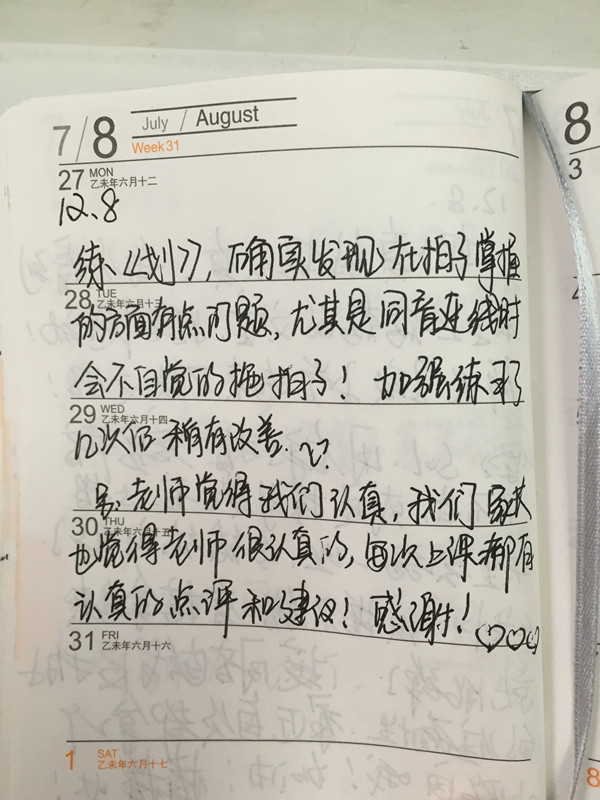 7/8 July / August
Week 31
27 MON
乙未年六月十二
12.8
练《划》，确实发现在拍子掌握
28 TUE
乙未年六月十三
的方面有点问题，尤其是同音连线时
会不自觉的拖拍子！加强练习了
29 WED
乙未年六月十四
几次后稍有改善.
老师觉得我们认真，我们家长
30 THU
乙未年六月十五
也觉得老师很认真的，每次上课都有
认真的点评和建议！感谢！
31 FRI
乙未年六月十六
1 SAT
乙未年六月十七
8
3
8